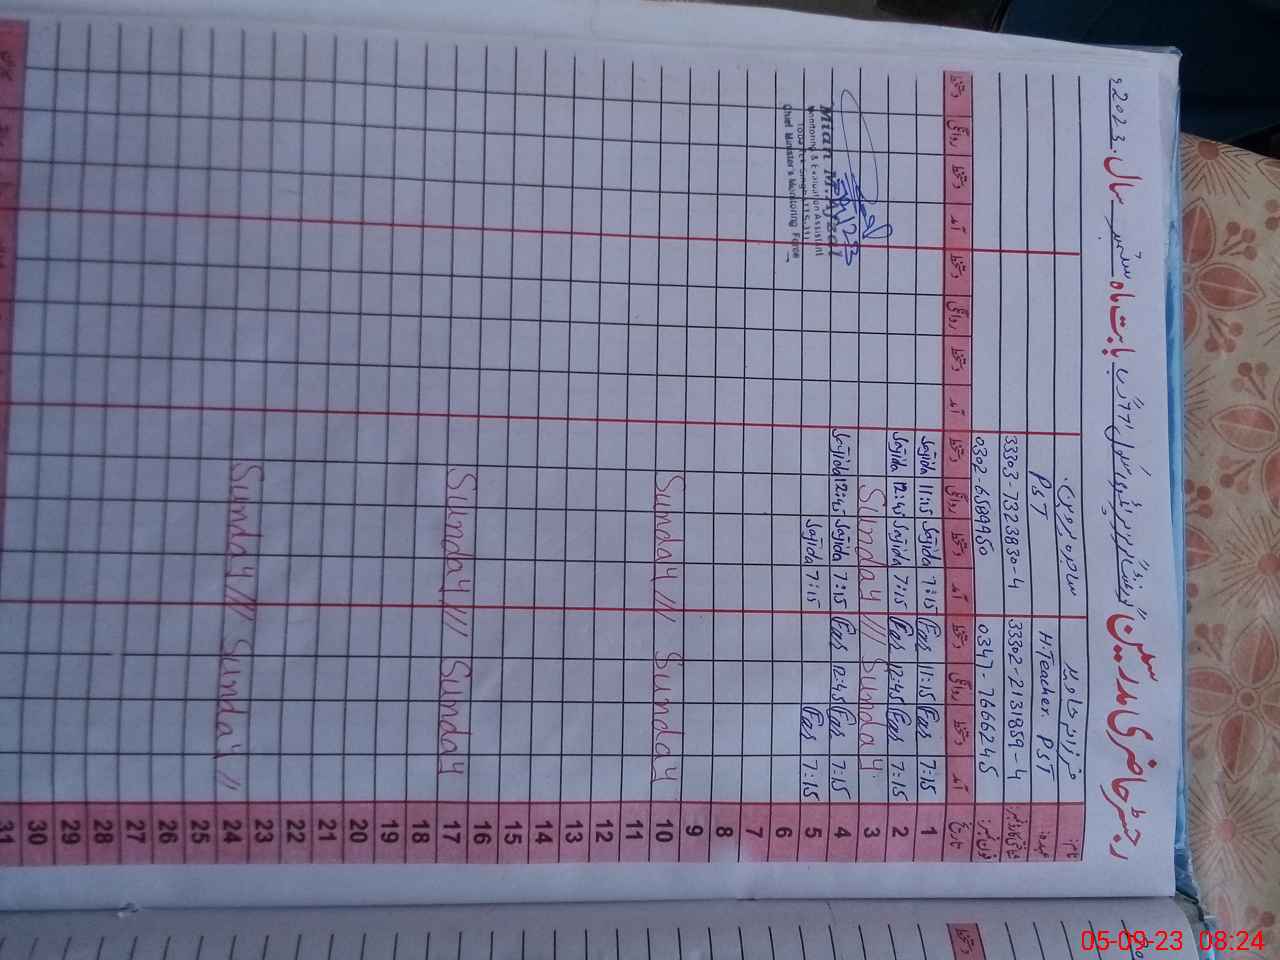 رجسٹر حاضری مدرسین گورنمنٹ گرلز پرائمری سکول بابت ماہ ستمبر سال 2023ء
نام: فرزانہ جاوید ساجدہ پروین
عہدہ: H.Teacher. PST PST
شناختی کارڈ نمبر: 33302-2131959-4 33303-7323830-4
فون نمبر: 0347-7666245 0302-6589950
تاریخ آمد دستخط روانگی دستخط آمد دستخط روانگی دستخط آمد دستخط روانگی دستخط آمد دستخط روانگی دستخط
1 7:15 Far 11:15 Far 7:15 Sajida 11:15 Sajida
2 7:15 Far 12:45 Far 7:15 Sajida 12:45 Sajida
3 Sunday /// Sunday
4 7:15 Far 12:45 Far 7:15 Sajida 12:45 Sajida
5 7:15 Far 7:15 Sajida
6
7
8
9
10 Sunday /// Sunday
11
12
13
14
15
16
17 Sunday /// Sunday
18
19
20
21
22
23
24 Sunday /// Sunday //
25
26
27
28
29
30
31
Mian M. Afzal
Monitoring & Evaluation Assistant
Toba Tek Singh
Chief Minister's Monitoring Force
05-09-23 08:24